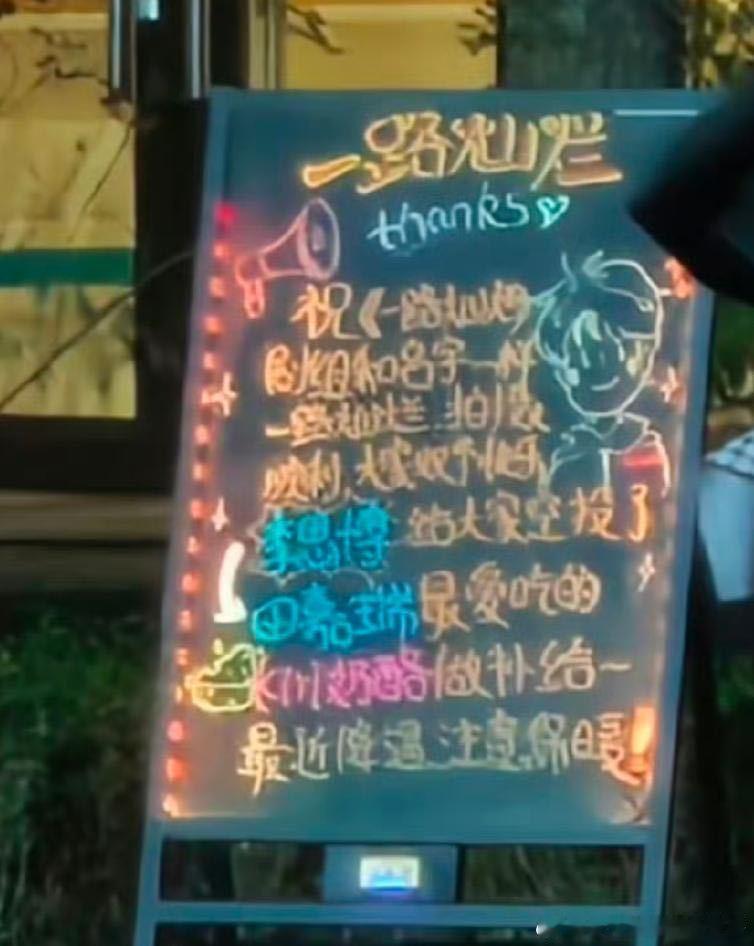 一路灿烂
thanks
祝《一路灿烂
剧组和名字一样
一路灿烂 拍摄
顺利、大家收予
李思博 给大家空投了
田嘉瑞最爱吃的
kiri奶酪做补给~
最近降温 注意保暖